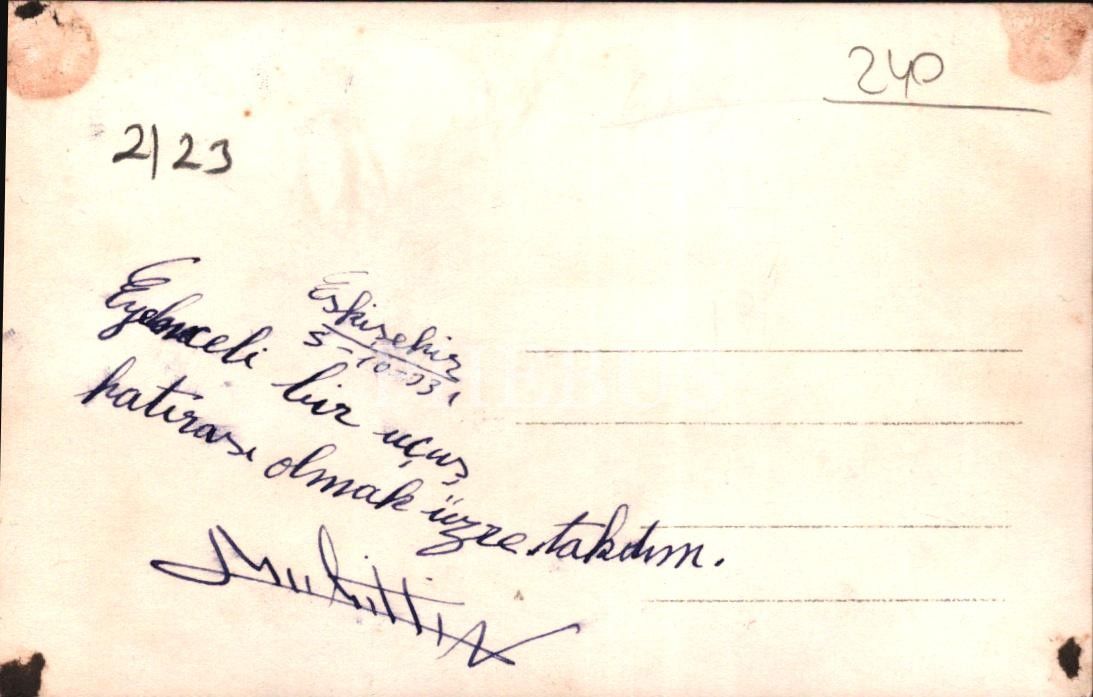 240
2/23
Eskisehir
5-10-933,
Eyebnceli bir uçuş
hatırası olmak üzre takdim.
Muhittin
PHEBUS